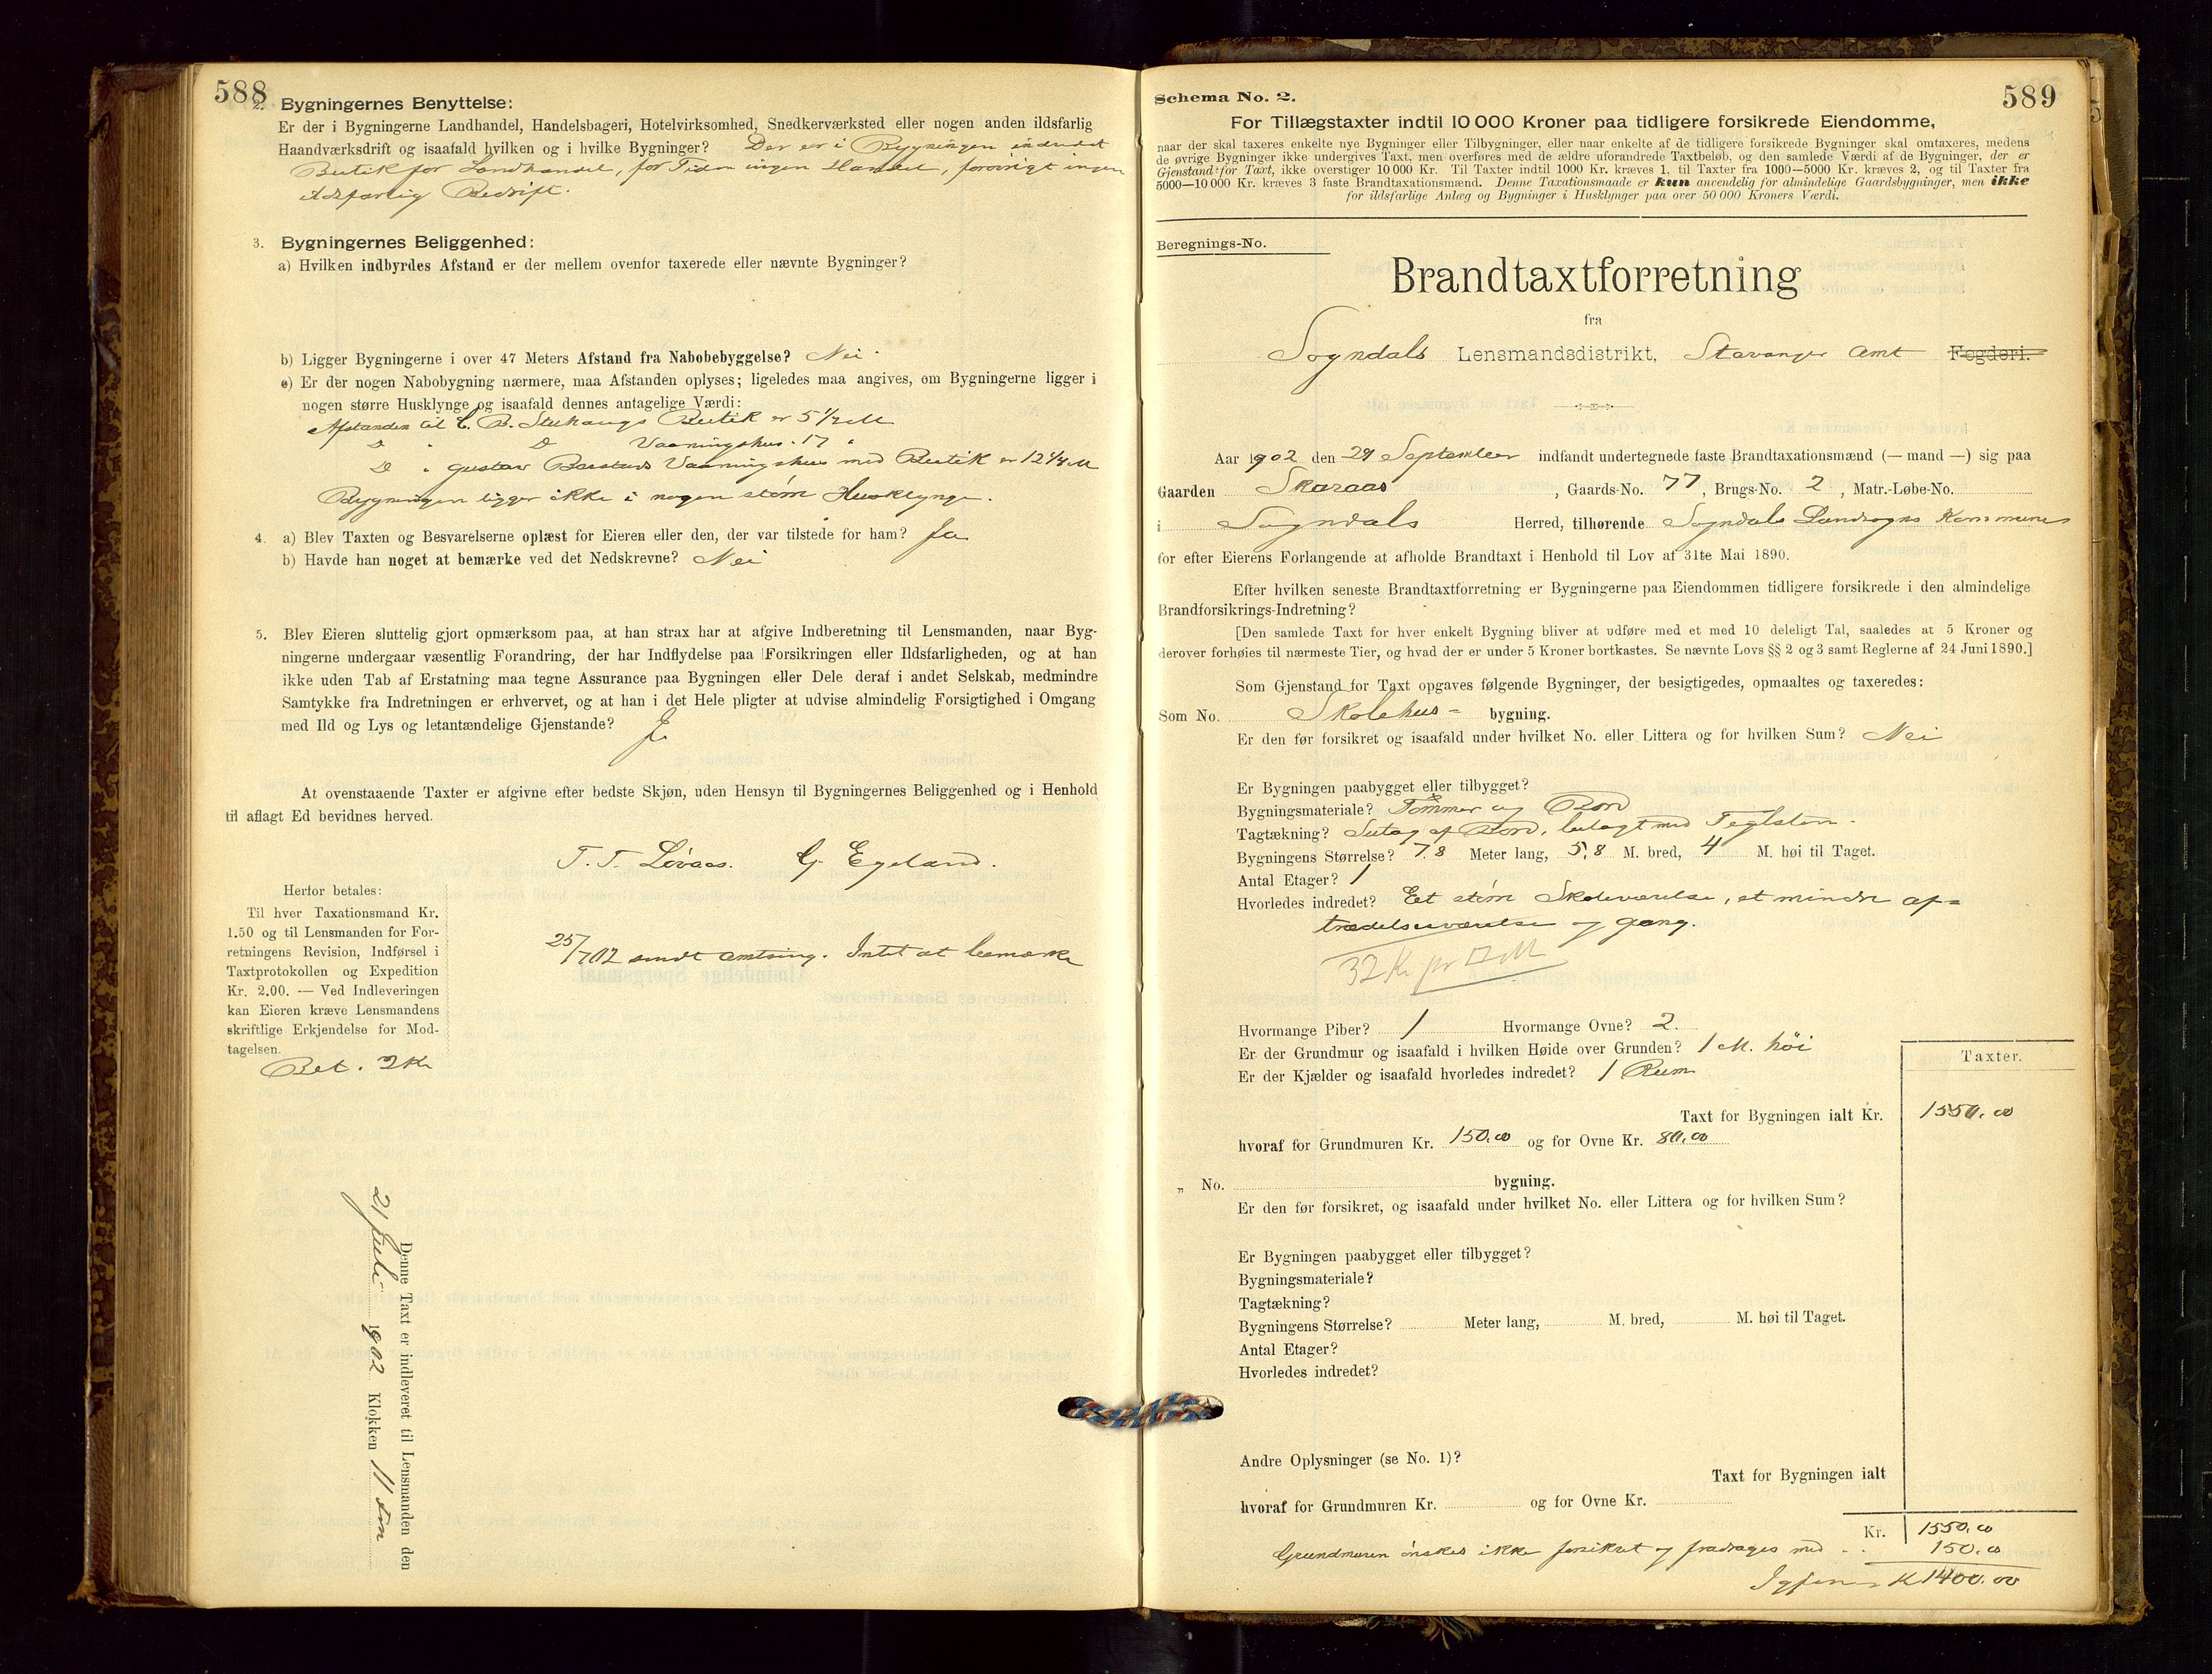 588
2. Bygningernes Benyttelse:
Er der i Bygningerne Landhandel, Handelsbageri, Hotelvirksomhed, Snedkerværksted eller nogen anden ildsfarlig
Haandværksdrift og isaafald hvilken og i hvilke Bygninger? Der er i Bygningen indredet
Butik for Landhandel, for Tiden ingen Handel, forøvrigt ingen
ildsfarlig Bedrift.
3. Bygningernes Beliggenhed:
a) Hvilken indbyrdes Afstand er der mellem ovenfor taxerede eller nævnte Bygninger?
b) Ligger Bygningerne i over 47 Meters Afstand fra Nabobebyggelse? Nei
c) Er der nogen Nabobygning nærmere, maa Afstanden oplyses; ligeledes maa angives, om Bygningerne ligger i
nogen større Husklynge og isaafald dennes antagelige Værdi:
Afstanden til C. B. Stuhaugs Butik er 5 1/2 M
D " D Vaaningshus . 17 "
D " Gustav Barstads Vaaningshus med Butik er 12 1/2 M
Bygningen ligger ikke i nogen større Husklynge.
4. a) Blev Taxten og Besvarelserne oplæst for Eieren eller den, der var tilstede for ham? Ja
b) Havde han noget at bemærke ved det Nedskrevne? Nei
5. Blev Eieren sluttelig gjort opmærksom paa, at han strax har at afgive Indberetning til Lensmanden, naar Byg-
ningerne undergaar væsentlig Forandring, der har Indflydelse paa Forsikringen eller Ildsfarligheden, og at han
ikke uden Tab af Erstatning maa tegne Assurance paa Bygningen eller Dele deraf i andet Selskab, medmindre
Samtykke fra Indretningen er erhvervet, og at han i det Hele pligter at udvise almindelig Forsigtighed i Omgang
med Ild og Lys og letantændelige Gjenstande? Ja
At ovenstaaende Taxter er afgivne efter bedste Skjøn, uden Hensyn til Bygningernes Beliggenhed og i Henhold
til aflagt Ed bevidnes herved.
T. T. Løvaas. G. Egeland.
Herfor betales:
Til hver Taxationsmand Kr.
1.50 og til Lensmanden for For-
retningens Revision, Indførsel i
Taxtprotokollen og Expedition
Kr. 2.00. — Ved Indleveringen
kan Eieren kræve Lensmandens
skriftlige Erkjendelse for Mod-
tagelsen.
Bet. 2 Kr
25/7 02 sendt amtsing. Intet at bemærke
Denne Taxt er indleveret til Lensmanden den
21 Juli 1902 Klokken 11 Fm
Schema No. 2.
589
For Tillægstaxter indtil 10 000 Kroner paa tidligere forsikrede Eiendomme,
naar der skal taxeres enkelte nye Bygninger eller Tilbygninger, eller naar enkelte af de tidligere forsikrede Bygninger skal omtaxeres, medens
de øvrige Bygninger ikke undergives Taxt, men overføres med de ældre uforandrede Taxtbeløb, og den samlede Værdi af de Bygninger, der er
Gjenstand for Taxt, ikke overstiger 10 000 Kr. Til Taxter indtil 1000 Kr. kræves 1, til Taxter fra 1000—5000 Kr. kræves 2, og til Taxter fra
5000—10 000 Kr. kræves 3 faste Brandtaxationsmænd. Denne Taxationsmaade er kun anvendelig for almindelige Gaardsbygninger, men ikke
for ildsfarlige Anlæg og Bygninger i Husklynger paa over 50 000 Kroners Værdi.
Beregnings-No.
Brandtaxtforretning
fra
Sogndals Lensmandsdistrikt, Stavanger Amt Fogderi.
Aar 1902 den 29 September indfandt undertegnede faste Brandtaxationsmænd (— mand —) sig paa
Gaarden Skaraas, Gaards-No. 77, Brugs-No. 2, Matr.-Løbe-No.
i Sogndals Herred, tilhørende Sogndals Landsogns Kommune
for efter Eierens Forlangende at afholde Brandtaxt i Henhold til Lov af 31te Mai 1890.
Efter hvilken seneste Brandtaxtforretning er Bygningerne paa Eiendommen tidligere forsikrede i den almindelige
Brandforsikrings-Indretning?
[Den samlede Taxt for hver enkelt Bygning bliver at udføre med et med 10 deleligt Tal, saaledes at 5 Kroner og
derover forhøies til nærmeste Tier, og hvad der er under 5 Kroner bortkastes. Se nævnte Lovs §§ 2 og 3 samt Reglerne af 24 Juni 1890.]
Som Gjenstand for Taxt opgaves følgende Bygninger, der besigtigedes, opmaaltes og taxeredes:
Som No. Skolehus- bygning.
Er den før forsikret og isaafald under hvilket No. eller Littera og for hvilken Sum? Nei
Er Bygningen paabygget eller tilbygget?
Bygningsmateriale? Tømmer og Bord
Tagtækning? Sutag af Bord, belagt med Teglsten.
Bygningens Størrelse? 7,8 Meter lang, 5,8 M. bred, 4 M. høi til Taget.
Antal Etager? 1
Hvorledes indredet? Et større Skoleværelse, et mindre af=
trædelsesværelse og gang.
32 Kr pr □ M
Hvormange Piber? 1 Hvormange Ovne? 2.
Er der Grundmur og isaafald i hvilken Høide over Grunden? 1 M. høi
Er der Kjælder og isaafald hvorledes indredet? 1 Rum
Taxter.
Taxt for Bygningen ialt Kr. 1550.00
hvoraf for Grundmuren Kr. 150.00 og for Ovne Kr. 80.00
„ No. bygning.
Er den før forsikret, og isaafald under hvilket No. eller Littera og for hvilken Sum?
Er Bygningen paabygget eller tilbygget?
Bygningsmateriale?
Tagtækning?
Bygningens Størrelse? Meter lang, M. bred, M. høi til Taget.
Antal Etager?
Hvorledes indredet?
Andre Oplysninger (se No. 1)?
Taxt for Bygningen ialt
hvoraf for Grundmuren Kr. og for Ovne Kr.
Kr. 1550.00
Grundmuren ønskes ikke forsikret og fradrages med 150.00
Igjen K 1400.00